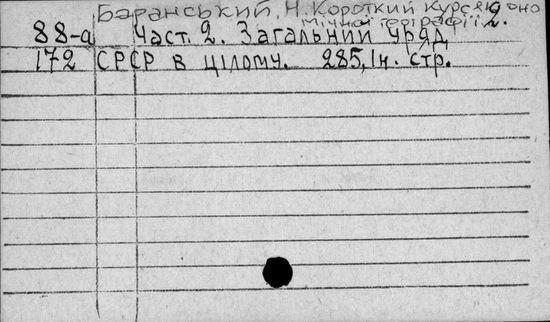 Баранський, Н. Короткий курс еконо
мічної географії 2.
88-а Част. 2. Загальний уряд
172 СРСР в цілому. 285, Ін. стр.